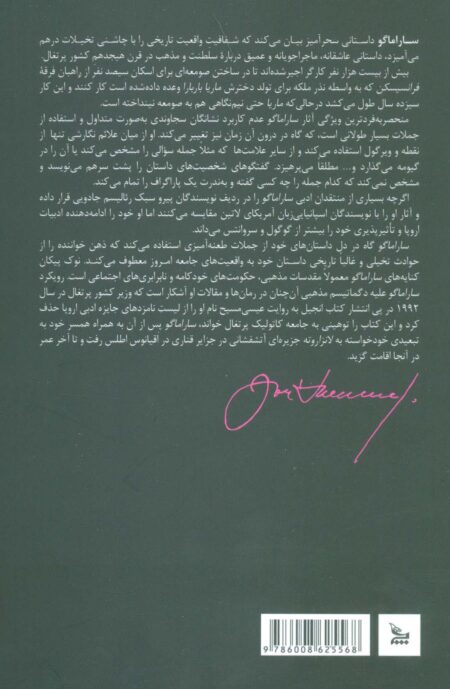 ساراماگو داستانی سحرآمیز بیان می‌کند که شفافیت واقعیت تاریخی را با چاشنی تخیلات درهم
می‌آمیزد، داستانی عاشقانه، ماجراجویانه و عمیق دربارهٔ سلطنت و مذهب در قرن هیجدهم کشور پرتغال.
بیش از بیست هزار نفر کارگر اجیر شده‌اند تا در ساختن صومعه‌ای برای اسکان سیصد نفر از راهبان فرقهٔ
فرانسیسکن که به واسطه نذر ملکه برای تولد دخترش ماریا باربارا وعده داده‌شده است کار کنند و این کار
سیزده سال طول می‌کشد درحالی‌که ماریا حتی نیم‌نگاهی هم به صومعه نینداخته است.
منحصربه‌فردترین ویژگی آثار ساراماگو عدم کاربرد نشانگان سجاوندی به‌صورت متداول و استفاده از
جملات بسیار طولانی است، که گاه در درون آن زمان نیز تغییر می‌کند. او از میان علائم نگارشی تنها از
نقطه و ویرگول استفاده می‌کند و از سایر علامت‌ها که مثلاً جمله سؤالی را مشخص می‌کند یا آن را در
گیومه می‌گذارد و... مطلقاً می‌پرهیزد. گفتگوهای شخصیت‌های داستان را پشت سرهم می‌نویسد و
مشخص نمی‌کند که کدام جمله را چه کسی گفته و به‌ندرت یک پاراگراف را تمام می‌کند.
اگرچه بسیاری از منتقدان ادبی ساراماگو را در ردیف نویسندگان پیرو سبک رئالیسم جادویی قرار داده
و آثار او را با نویسندگان اسپانیایی‌زبان آمریکای لاتین مقایسه می‌کنند اما او خود را ادامه‌دهنده ادبیات
اروپا و تأثیرپذیری خود را بیشتر از گوگول و سروانتس می‌داند.
ساراماگو گاه در دل داستان‌های خود از جملات طعنه‌آمیزی استفاده می‌کند که ذهن خواننده را از
حوادث تخیلی و غالباً تاریخی داستان خود به واقعیت‌های جامعه امروز معطوف می‌کند. نوک پیکان
کنایه‌های ساراماگو معمولاً مقدسات مذهبی، حکومت‌های خودکامه و نابرابری‌های اجتماعی است. رویکرد
ساراماگو علیه دگماتیسم مذهبی آن‌چنان در رمان‌ها و مقالات او آشکار است که وزیر کشور پرتغال در سال
۱۹۹۲ در پی انتشار کتاب انجیل به روایت عیسی‌مسیح نام او را از لیست نامزدهای جایزه ادبی اروپا حذف
کرد و این کتاب را توهینی به جامعه کاتولیک پرتغال خواند، ساراماگو پس از آن به همراه همسر خود به
تبعیدی خودخواسته به لانزاروته جزیره‌ای آتشفشانی در جزایر قناری در اقیانوس اطلس رفت و تا آخر عمر
در آنجا اقامت گزید.
9 786008 625568